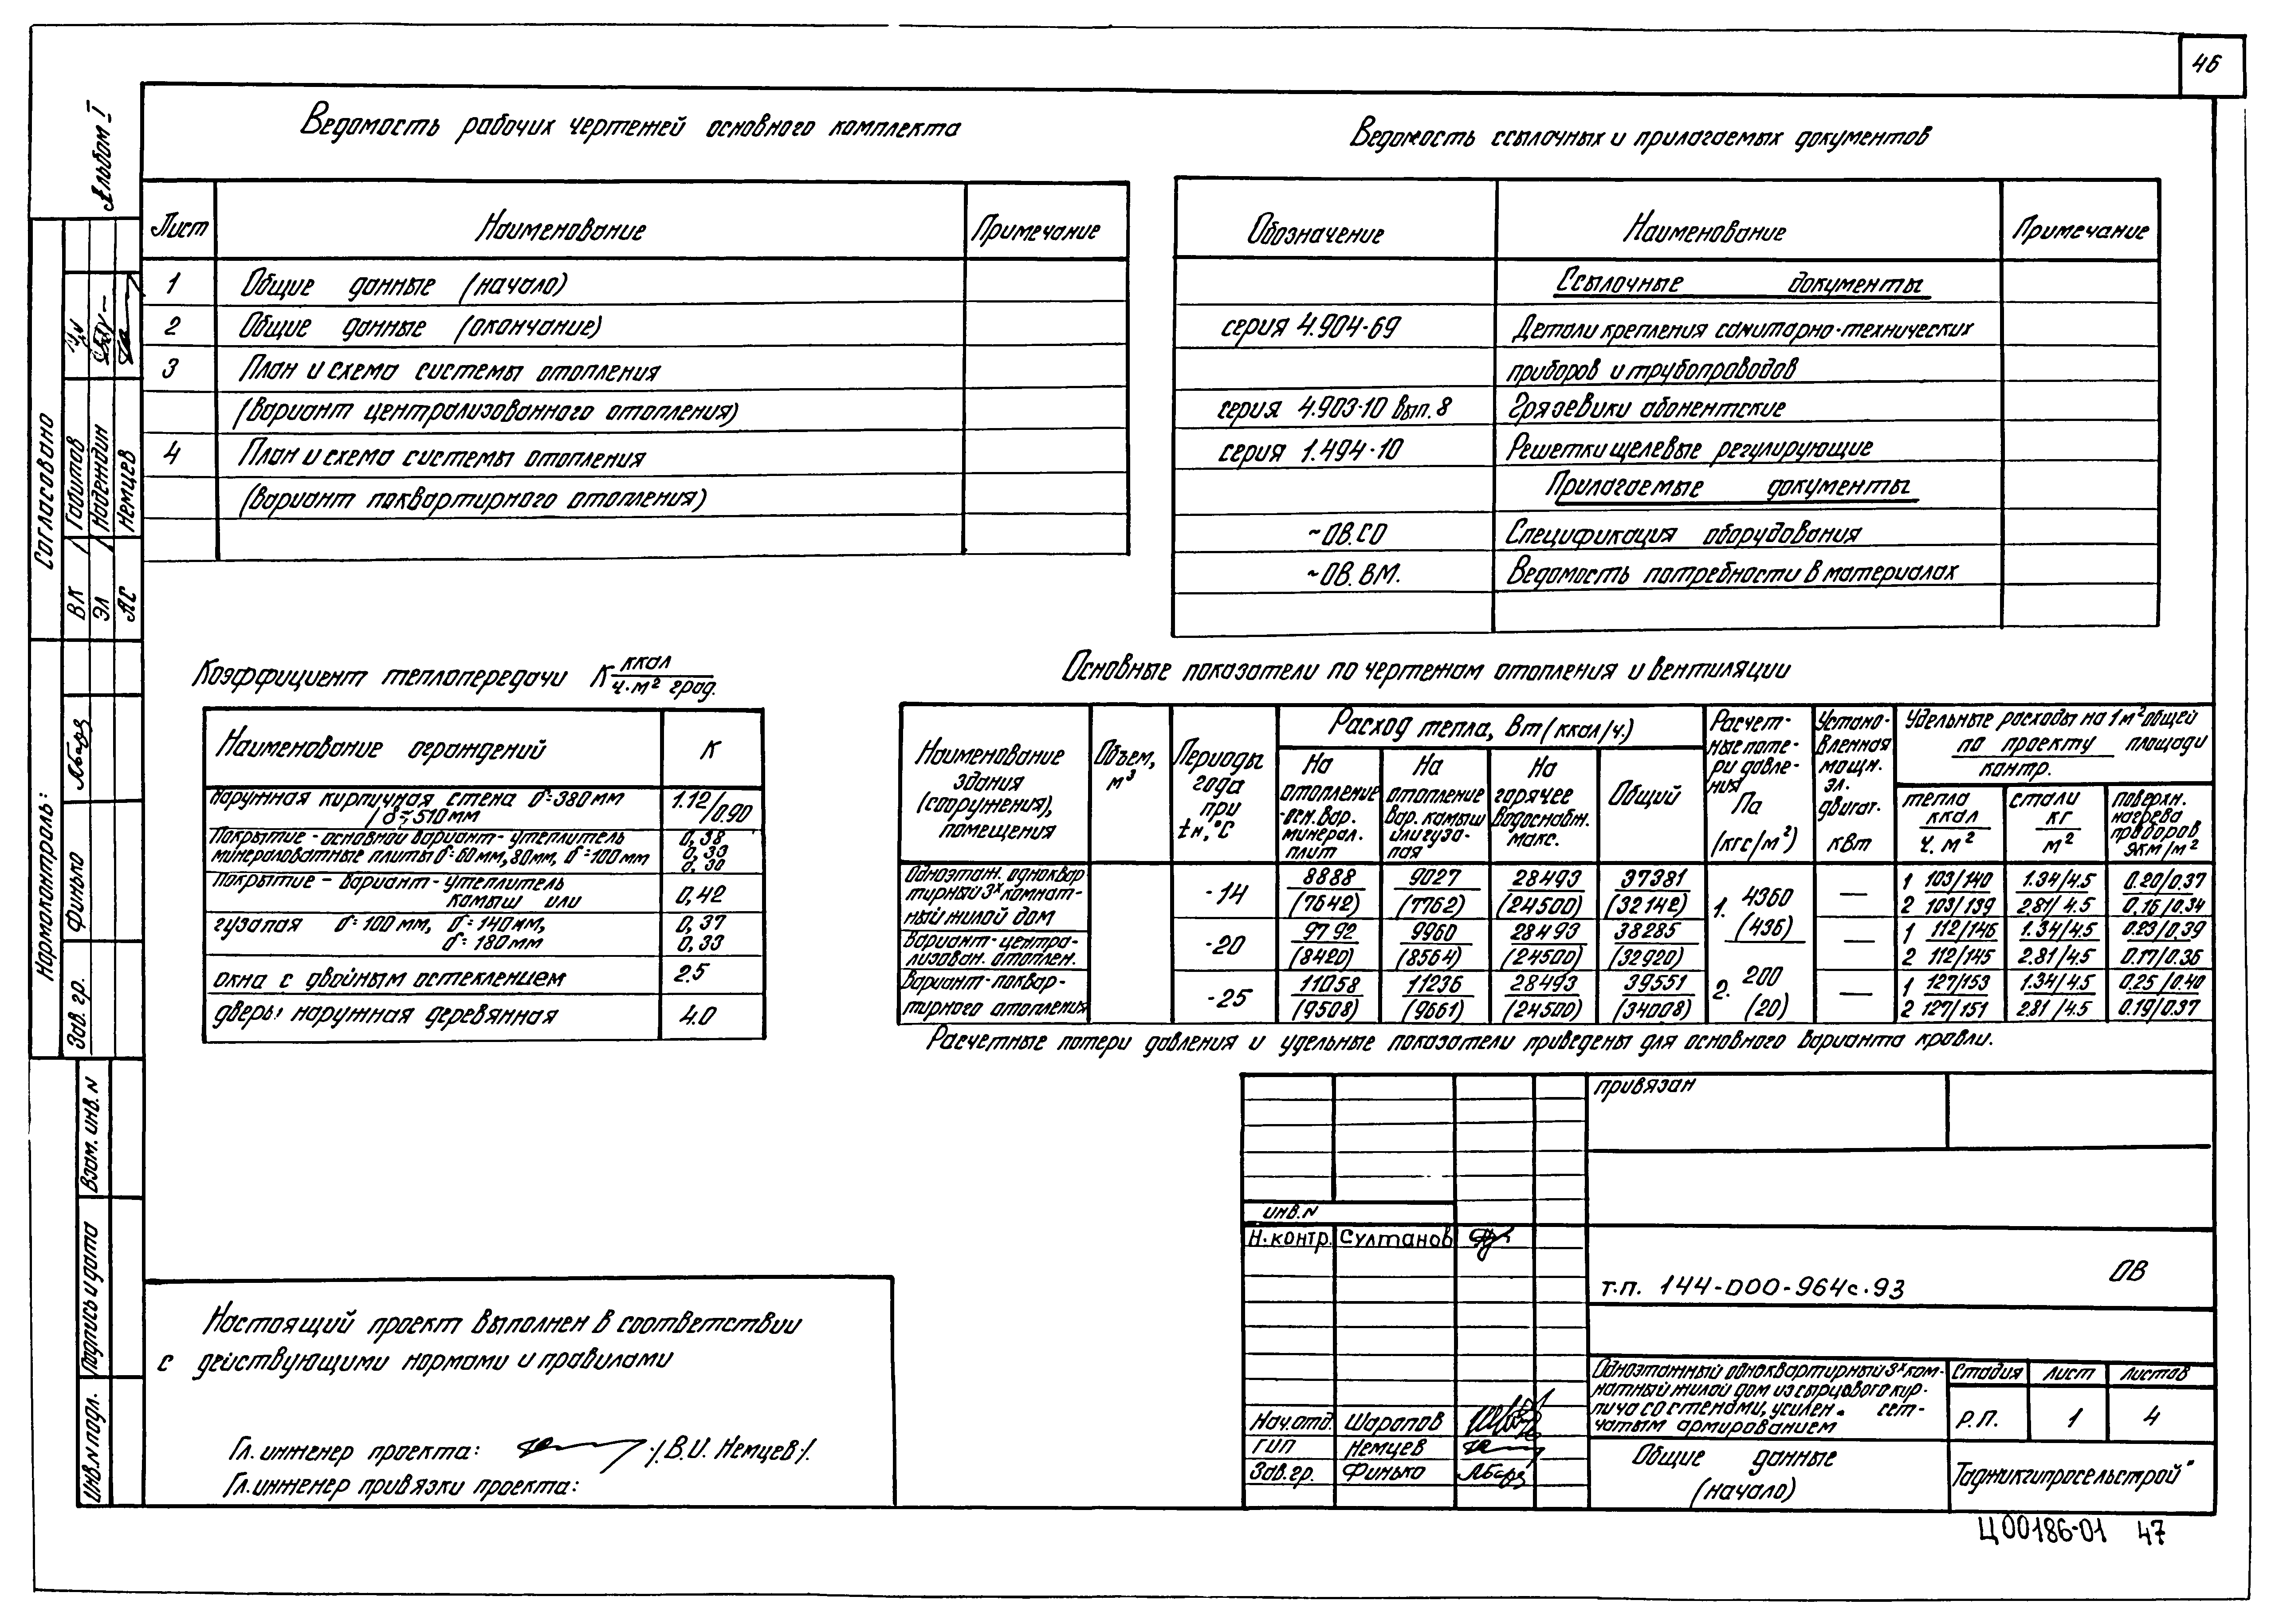 46
Альбом I
Ведомость рабочих чертежей основного комплекта
Лист Наименование Примечание
1 Общие данные (начало)
2 Общие данные (окончание)
3 План и схема системы отопления
(вариант централизованного отопления)
4 План и схема системы отопления
(вариант поквартирного отопления)
Ведомость ссылочных и прилагаемых документов
Обозначение Наименование Примечание
Ссылочные документы
серия 4.904-69 Детали крепления санитарно-технических
приборов и трубопроводов
серия 4.903-10 вып. 8 Грязевики абонентские
серия 1.494-10 Решетки щелевые регулирующие
Прилагаемые документы
~ОВ.СО Спецификация оборудования
~ОВ.ВМ. Ведомость потребности в материалах
Коэффициент теплопередачи К ккал
ч.м² град.
Наименование ограждений К
Наружная кирпичная стена δ=380мм 1.12
/δ=510мм /0.90
Покрытие-основной вариант-утеплитель 0,38
минераловатные плиты δ=60мм, 80мм, δ=100мм 0,33
0,30
Покрытие-вариант-утеплитель
камыш или 0,42
гузапая δ=100мм, δ=140мм, 0,37
δ=180мм 0,33
окна с двойным остеклением 2.5
дверь: наружная деревянная 4.0
Основные показатели по чертежам отопления и вентиляции
Наименование здания (сооружения), помещения
Объем, м³
Периоды года при tн,°С
Расход тепла, Вт (ккал/ч.)
На отопление -осн. вар. минерал. плит
На отопление вар. камыш или гуза-пая
На горячее водоснабж. макс.
Общий
Расчет-ные поте-ри давле-ния Па (кгс/м²)
Устано-вленная мощн. эл. двигат. кВт
Удельные расходы на 1м² общей
по проекту площади
контр.
тепла ккал ч. м²
стали кг м²
поверхн. нагрева приборов экм/м²
Одноэтаж. одноквар-
тирный 3х комнат-
ный жилой дом
Вариант-центра-
лизован. отоплен.
Вариант-поквар-
тирного отопления
-14 8888 9027 28493 37381 — 1 103/140 1.34/4.5 0.20/0.37
(7642) (7762) (24500) (32142) 2 103/139 2.81/4.5 0.16/0.34
-20 9792 9960 28493 38285 — 1 112/146 1.34/4.5 0.23/0.39
(8420) (8564) (24500) (32920) 2 112/145 2.81/4.5 0.17/0.36
-25 11058 11236 28493 39551 — 1 127/153 1.34/4.5 0.25/0.40
(9508) (9661) (24500) (34008) 2 127/151 2.81/4.5 0.19/0.37
1. 4360
(436)
2. 200
(20)
Расчетные потери давления и удельные показатели приведены для основного варианта кровли.
Согласовано
ВК Габитов
ЭЛ Надеждин
АС Немцев
Нормоконтроль:
Зав. гр. Финько
Взам. инв. N
Подпись и дата
Инв. N подл.
Настоящий проект выполнен в соответствии
с действующими нормами и правилами
Гл. инженер проекта: /В.И. Немцев/.
Гл. инженер привязки проекта:
привязан
инв. N
Н. контр. Султанов
т.п. 144-000-964с.93 ОВ
Нач отд Шарапов
ГИП Немцев
Зав. гр. Финько
Одноэтажный одноквартирный 3х ком-
натный жилой дом из сырцового кир-
пича со стенами, усилен. сет-
чатым армированием
Стадия Лист Листов
Р.П. 1 4
Общие данные
(начало)
Таджикгипросельстрой"
Ц00186-01 47